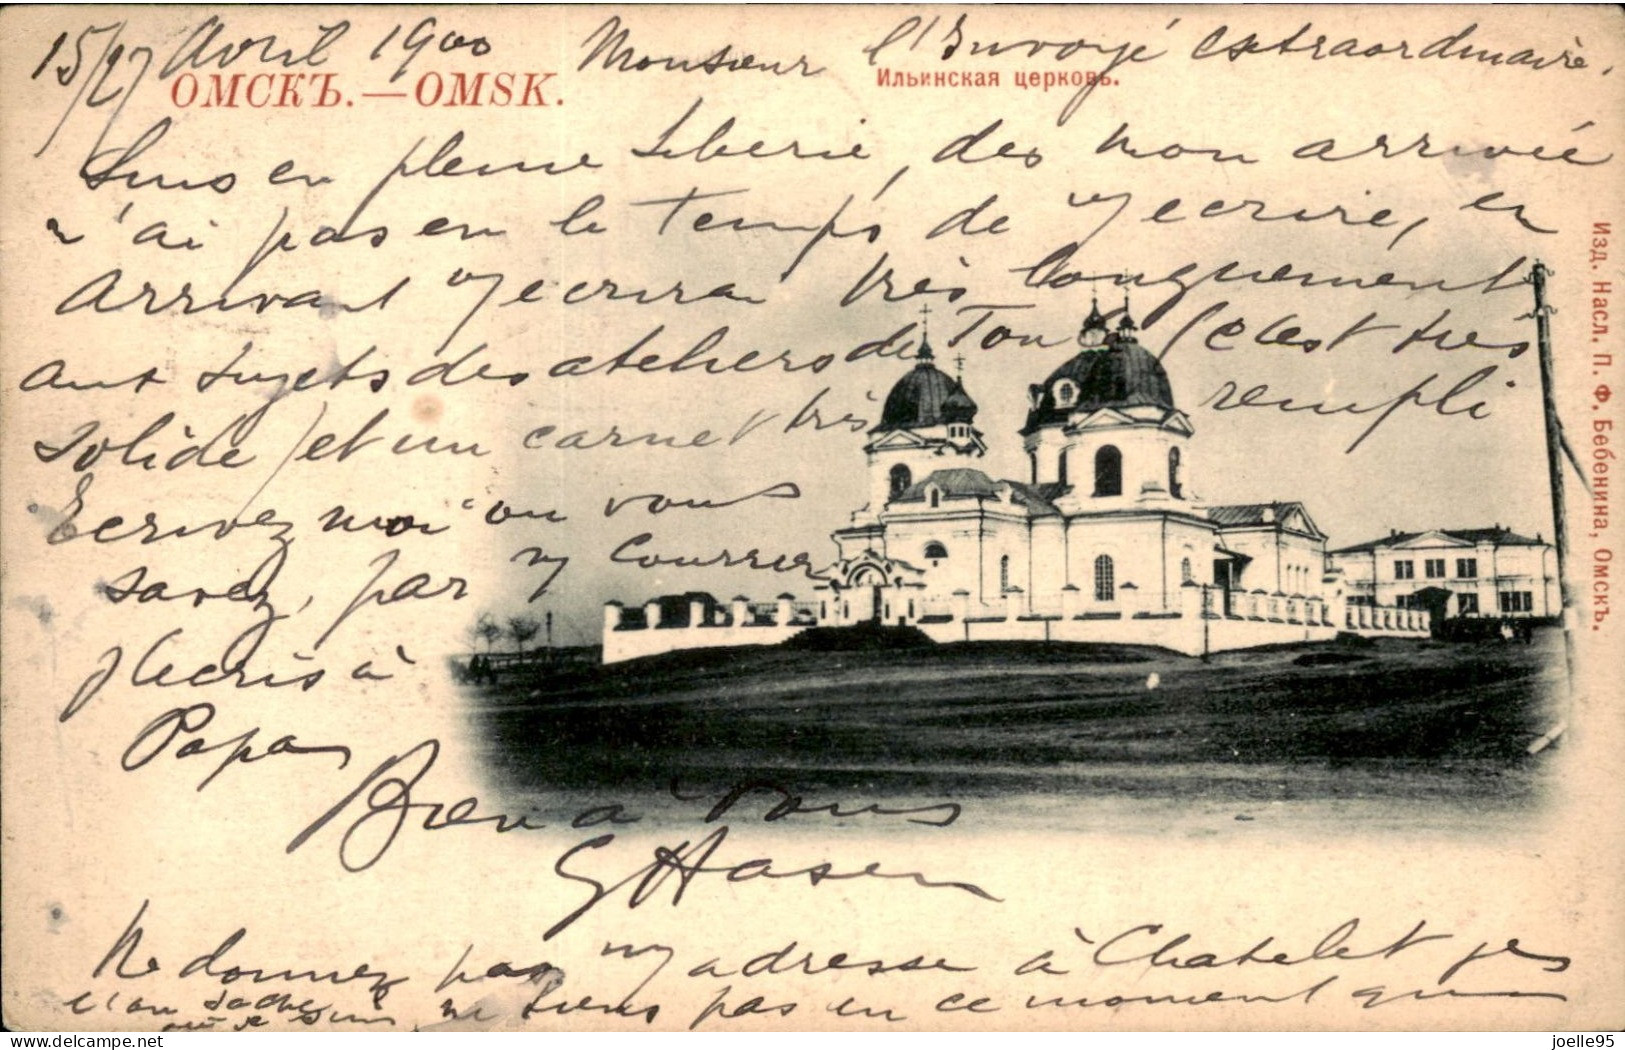 15/27 Avril 1900 Monsieur l'Envoyé extraordinaire.
ОМСКЪ.—OMSK.
Ильинская церковь.
Suis en pleine Siberie, des mon arrivée
n'ai pas en le temps de vs ecrire, en
arrivant vs ecrirai très longuement
aux sujets des ateliers de Toula (c'est très
solide) et un carnet très rempli
Ecrivez moi ou vous
savez, par vs Courrier
j'ecris à
Papa
Bien à vous
GHasen
Ne donnez pas mon adresse à Chatelet je
ne tiens pas en ce moment que
l'on sache
où je suis
Изд. Насл. П. Ф. Бебенина, Омскъ.
delcampe.net
joelle95